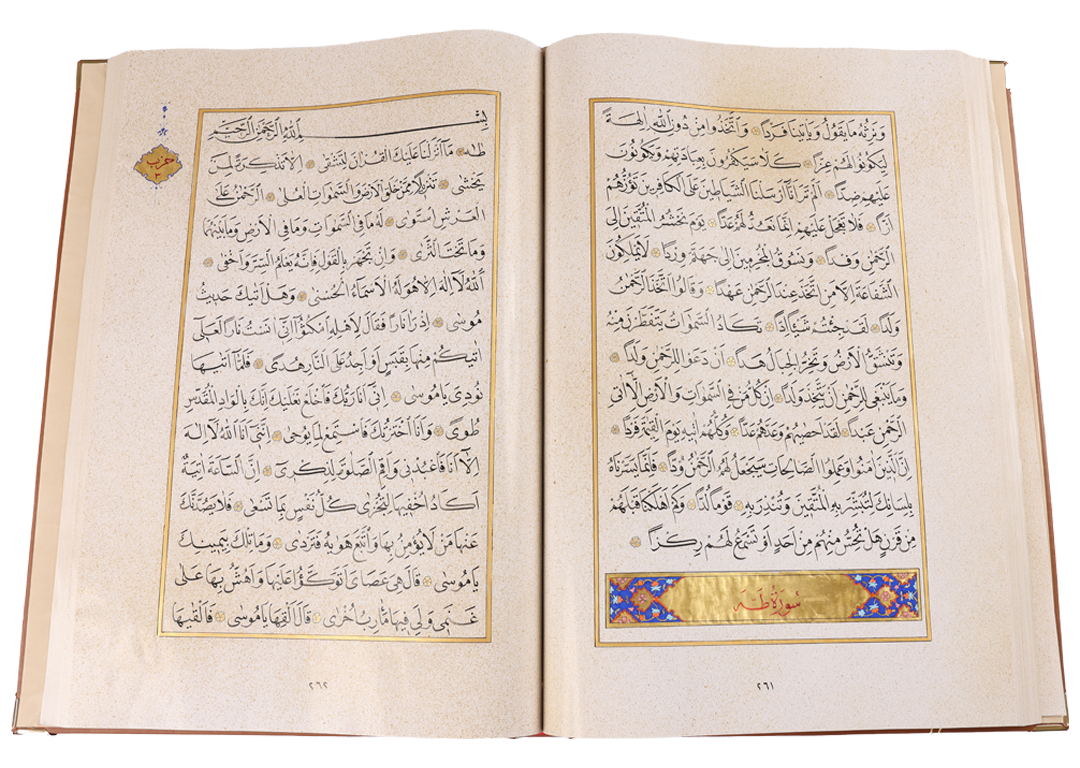 وَنَرِثُهُ مَا يَقُولُ وَيَأْتِينَا فَرْدًا وَاتَّخَذُوا مِنْ دُونِ اللّٰهِ اٰلِهَةً
لِيَكُونُوا لَهُمْ عِزًّا كَلَّا سَيَكْفُرُونَ بِعِبَادَتِهِمْ وَيَكُونُونَ
عَلَيْهِمْ ضِدًّا اَلَمْ تَرَ اَنَّا اَرْسَلْنَا الشَّيَاطِينَ عَلَى الْكَافِرِينَ تَؤُزُّهُمْ
اَزًّا فَلَا تَعْجَلْ عَلَيْهِمْ اِنَّمَا نَعُدُّ لَهُمْ عَدًّا يَوْمَ نَحْشُرُ الْمُتَّقِينَ اِلَى
الرَّحْمٰنِ وَفْدًا وَنَسُوقُ الْمُجْرِمِينَ اِلٰى جَهَنَّمَ وِرْدًا لَا يَمْلِكُونَ
الشَّفَاعَةَ اِلَّا مَنِ اتَّخَذَ عِنْدَ الرَّحْمٰنِ عَهْدًا وَقَالُوا اتَّخَذَ الرَّحْمٰنُ
وَلَدًا لَقَدْ جِئْتُمْ شَيْئًا اِدًّا تَكَادُ السَّمٰوَاتُ يَتَفَطَّرْنَ مِنْهُ
وَتَنْشَقُّ الْاَرْضُ وَتَخِرُّ الْجِبَالُ هَدًّا اَنْ دَعَوْا لِلرَّحْمٰنِ وَلَدًا
وَمَا يَنْبَغِي لِلرَّحْمٰنِ اَنْ يَتَّخِذَ وَلَدًا اِنْ كُلُّ مَنْ فِي السَّمٰوَاتِ وَالْاَرْضِ اِلَّا اٰتِي
الرَّحْمٰنِ عَبْدًا لَقَدْ اَحْصٰيهُمْ وَعَدَّهُمْ عَدًّا وَكُلُّهُمْ اٰتِيهِ يَوْمَ الْقِيٰمَةِ فَرْدًا
اِنَّ الَّذِينَ اٰمَنُوا وَعَمِلُوا الصَّالِحَاتِ سَيَجْعَلُ لَهُمُ الرَّحْمٰنُ وُدًّا فَاِنَّمَا يَسَّرْنَاهُ
بِلِسَانِكَ لِتُبَشِّرَ بِهِ الْمُتَّقِينَ وَتُنْذِرَ بِهِ قَوْمًا لُدًّا وَكَمْ اَهْلَكْنَا قَبْلَهُمْ
مِنْ قَرْنٍ هَلْ تُحِسُّ مِنْهُمْ مِنْ اَحَدٍ اَوْ تَسْمَعُ لَهُمْ رِكْزًا
سُورَةُ طٰهٰ
٢٦١
بِسْمِ اللّٰهِ الرَّحْمٰنِ الرَّحِيمِ
طٰهٰ مَا اَنْزَلْنَا عَلَيْكَ الْقُرْاٰنَ لِتَشْقٰى اِلَّا تَذْكِرَةً لِمَنْ
يَخْشٰى تَنْزِيلًا مِمَّنْ خَلَقَ الْاَرْضَ وَالسَّمٰوَاتِ الْعُلٰى اَلرَّحْمٰنُ عَلَى
الْعَرْشِ اسْتَوٰى لَهُ مَا فِي السَّمٰوَاتِ وَمَا فِي الْاَرْضِ وَمَا بَيْنَهُمَا
وَمَا تَحْتَ الثَّرٰى وَاِنْ تَجْهَرْ بِالْقَوْلِ فَاِنَّهُ يَعْلَمُ السِّرَّ وَاَخْفٰى
اَللّٰهُ لَا اِلٰهَ اِلَّا هُوَ لَهُ الْاَسْمَاءُ الْحُسْنٰى وَهَلْ اَتٰيكَ حَدِيثُ
مُوسٰى اِذْ رَاٰ نَارًا فَقَالَ لِاَهْلِهِ امْكُثُوا اِنِّي اٰنَسْتُ نَارًا لَعَلِّي
اٰتِيكُمْ مِنْهَا بِقَبَسٍ اَوْ اَجِدُ عَلَى النَّارِ هُدًى فَلَمَّا اَتٰيهَا
نُودِيَ يَا مُوسٰى اِنِّي اَنَا رَبُّكَ فَاخْلَعْ نَعْلَيْكَ اِنَّكَ بِالْوَادِ الْمُقَدَّسِ
طُوًى وَاَنَا اخْتَرْتُكَ فَاسْتَمِعْ لِمَا يُوحٰى اِنَّنِي اَنَا اللّٰهُ لَا اِلٰهَ
اِلَّا اَنَا فَاعْبُدْنِي وَاَقِمِ الصَّلٰوةَ لِذِكْرِي اِنَّ السَّاعَةَ اٰتِيَةٌ
اَكَادُ اُخْفِيهَا لِتُجْزٰى كُلُّ نَفْسٍ بِمَا تَسْعٰى فَلَا يَصُدَّنَّكَ
عَنْهَا مَنْ لَا يُؤْمِنُ بِهَا وَاتَّبَعَ هَوٰيهُ فَتَرْدٰى وَمَا تِلْكَ بِيَمِينِكَ
يَا مُوسٰى قَالَ هِيَ عَصَايَ اَتَوَكَّؤُا عَلَيْهَا وَاَهُشُّ بِهَا عَلٰى
غَنَمِي وَلِيَ فِيهَا مَاٰرِبُ اُخْرٰى قَالَ اَلْقِهَا يَا مُوسٰى فَاَلْقٰيهَا
حزب
٢٦٢